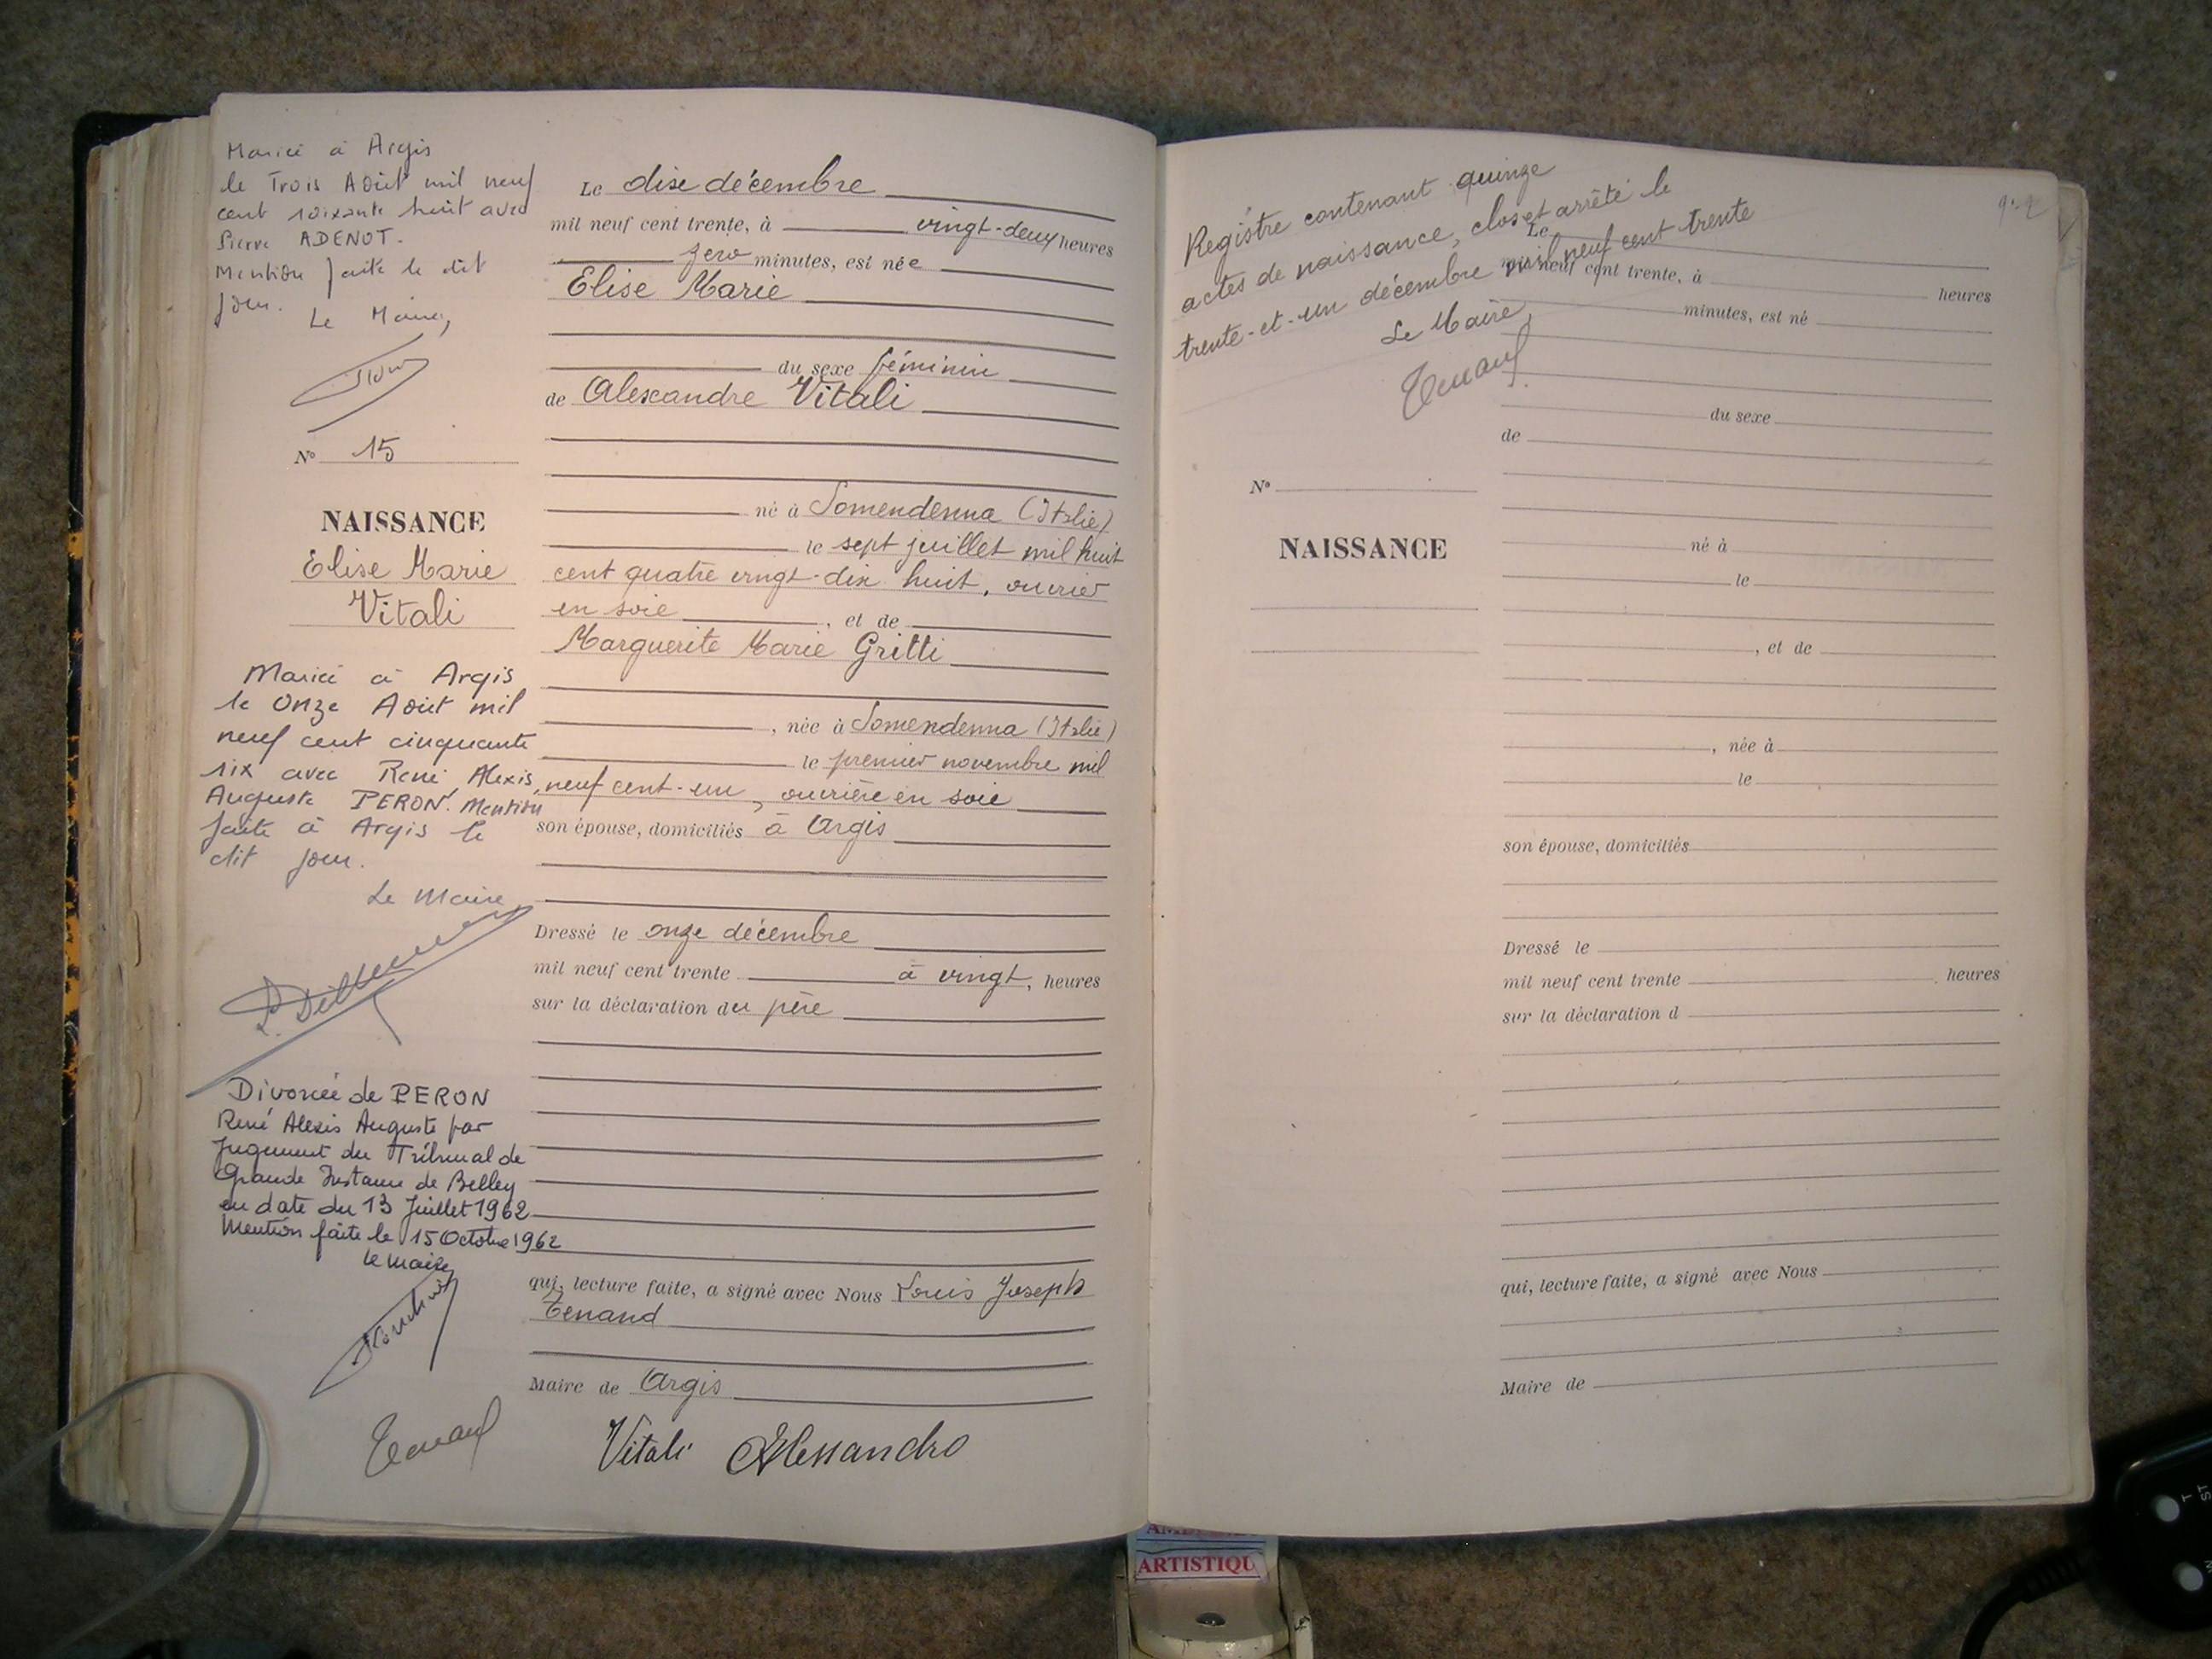 Mariée à Argis
le Trois Août mil neuf
cent soixante huit avec
Pierre ADENOT.
Mention faite le dit
jour.
Le Maire,
N° 15
NAISSANCE
Elise Marie
Vitali
Mariée à Argis
le Onze Août mil
neuf cent cinquante
six avec René, Alexis,
Auguste PERON. Mention
faite à Argis le
dit jour.
Le Maire,
Divorcée de PERON
René Alexis Auguste par
Jugement du Tribunal de
Grande Instance de Belley
en date du 13 Juillet 1962
Mention faite le 15 Octobre 1962
le maire
Tenand
Le dix décembre
mil neuf cent trente, à vingt-deux heures
zero minutes, est née
Elise Marie
du sexe féminin
de Alexandre Vitali
né à Somendenna (Italie)
le sept juillet mil huit
cent quatre vingt-dix huit, ouvrier
en soie, et de
Marguerite Marie Gritti
, née à Somendenna (Italie)
le premier novembre mil
neuf cent-un, ouvrière en soie
son épouse, domiciliés à Argis
Dressé le onze décembre
mil neuf cent trente à vingt, heures
sur la déclaration du père
qui, lecture faite, a signé avec Nous Louis Joseph
Tenand
Maire de Argis
Vitali Alessandro
Registre contenant quinze
actes de naissance, clos et arrêté le
trente-et-un décembre mil neuf cent trente
Le Maire,
Tenand
Le
mil neuf cent trente, à heures
minutes, est né
du sexe
de
N°
NAISSANCE
né à
le
, et de
, née à
le
son épouse, domiciliés
Dressé le
mil neuf cent trente heures
sur la déclaration d
qui, lecture faite, a signé avec Nous
Maire de
ARTISTIQU
T
ST